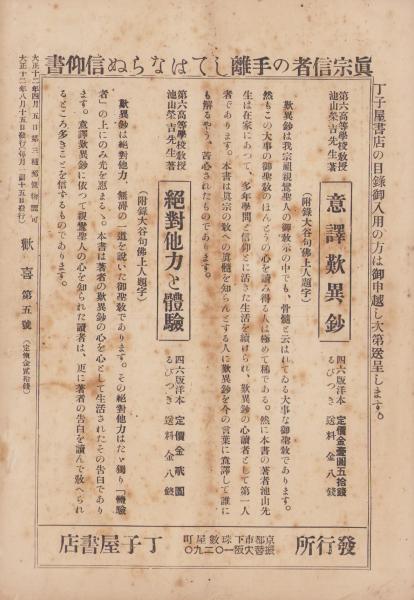 眞宗信者の手離してはならぬ信仰書
丁子屋書店の目錄御入用の方は御申越し次第送呈します。
第六高等學校敎授
池山榮吉先生著
意譯歎異鈔
四六版洋本 定價金壹圓五拾錢
るびつき 送料金八錢
(附錄大谷句佛上人題字)
歎異鈔は我宗祖親鸞聖人の御敎示の中でも、骨髓と云はれてゐる大事な御聖敎であります。
然もこの大事の御聖敎のほんとうの心を讀み得る人は極めて稀である。然に本書の著者池山先
生は在家にあつて、多年學問と信仰とに活きた生活を續けられ、歎異鈔の心讀者として第一人
者であります。本書は眞宗の敎への眞髓を知らんとする人に歎異鈔を今の言葉に意譯して誰に
も解るやう、苦心されたものであります。
第六高等學校敎授
池山榮吉先生著
絕對他力と體驗
四六版洋本 定價金貳圓
るびつき 送料金八錢
(附錄大谷句佛上人題字)
歎異鈔は絕對他力、無碍の一道を說いた御聖敎であります。その絕對他力はたゞ獨り「體驗
者」の上にのみ光を惠まるゝ。本書は著者の歎異鈔の心を心として生活されたその告白であり
ます。意譯歎異鈔に依つて親鸞聖人の心を知られた讀者は、更に著者の告白を讀んで敎へられ
るところ多きことを信ずるものであります。
大正十二年四月五日第三種郵便物認可
大正十二年八月十五日發行(每月一回十五日發行)
歡喜 第五號 (定價金貳拾錢)
發行所
京都市下珠數屋町
振替大阪一〇二九〇
丁子屋書店